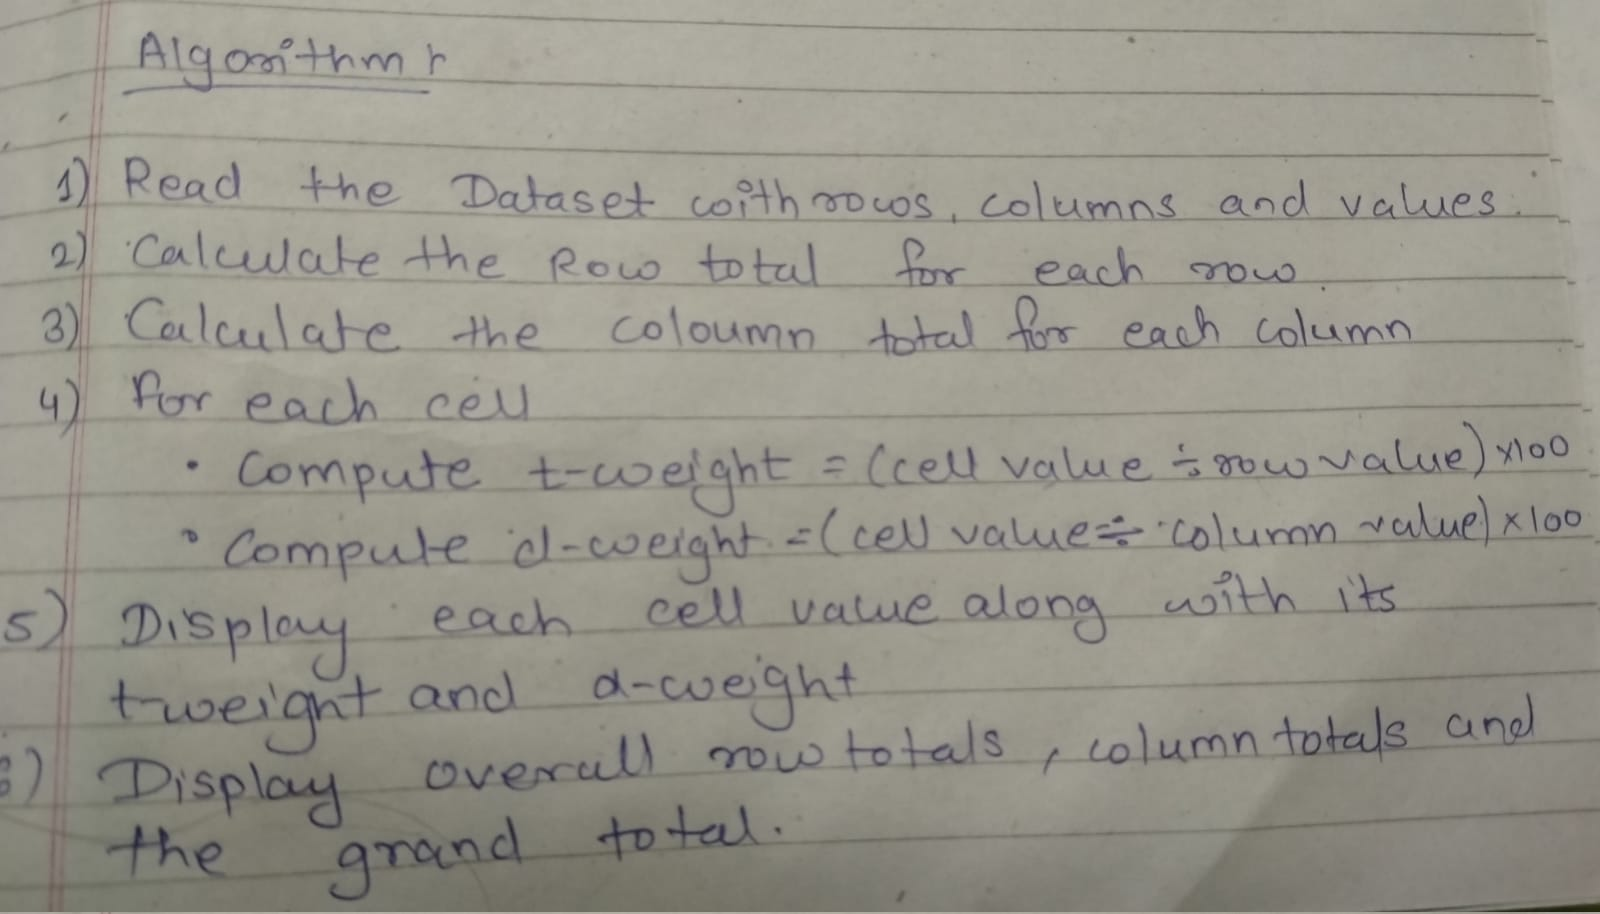 Algorithm :-
1) Read the Dataset with rows, columns and values.
2) Calculate the Row total for each row.
3) Calculate the coloumn total for each column
4) for each cell
• Compute t-weight = (cell value ÷ row value) x100
• Compute d-weight = (cell value ÷ column value) x100
5) Display each cell value along with its
t-weight and d-weight
6) Display overall row totals, column totals and
the grand total.